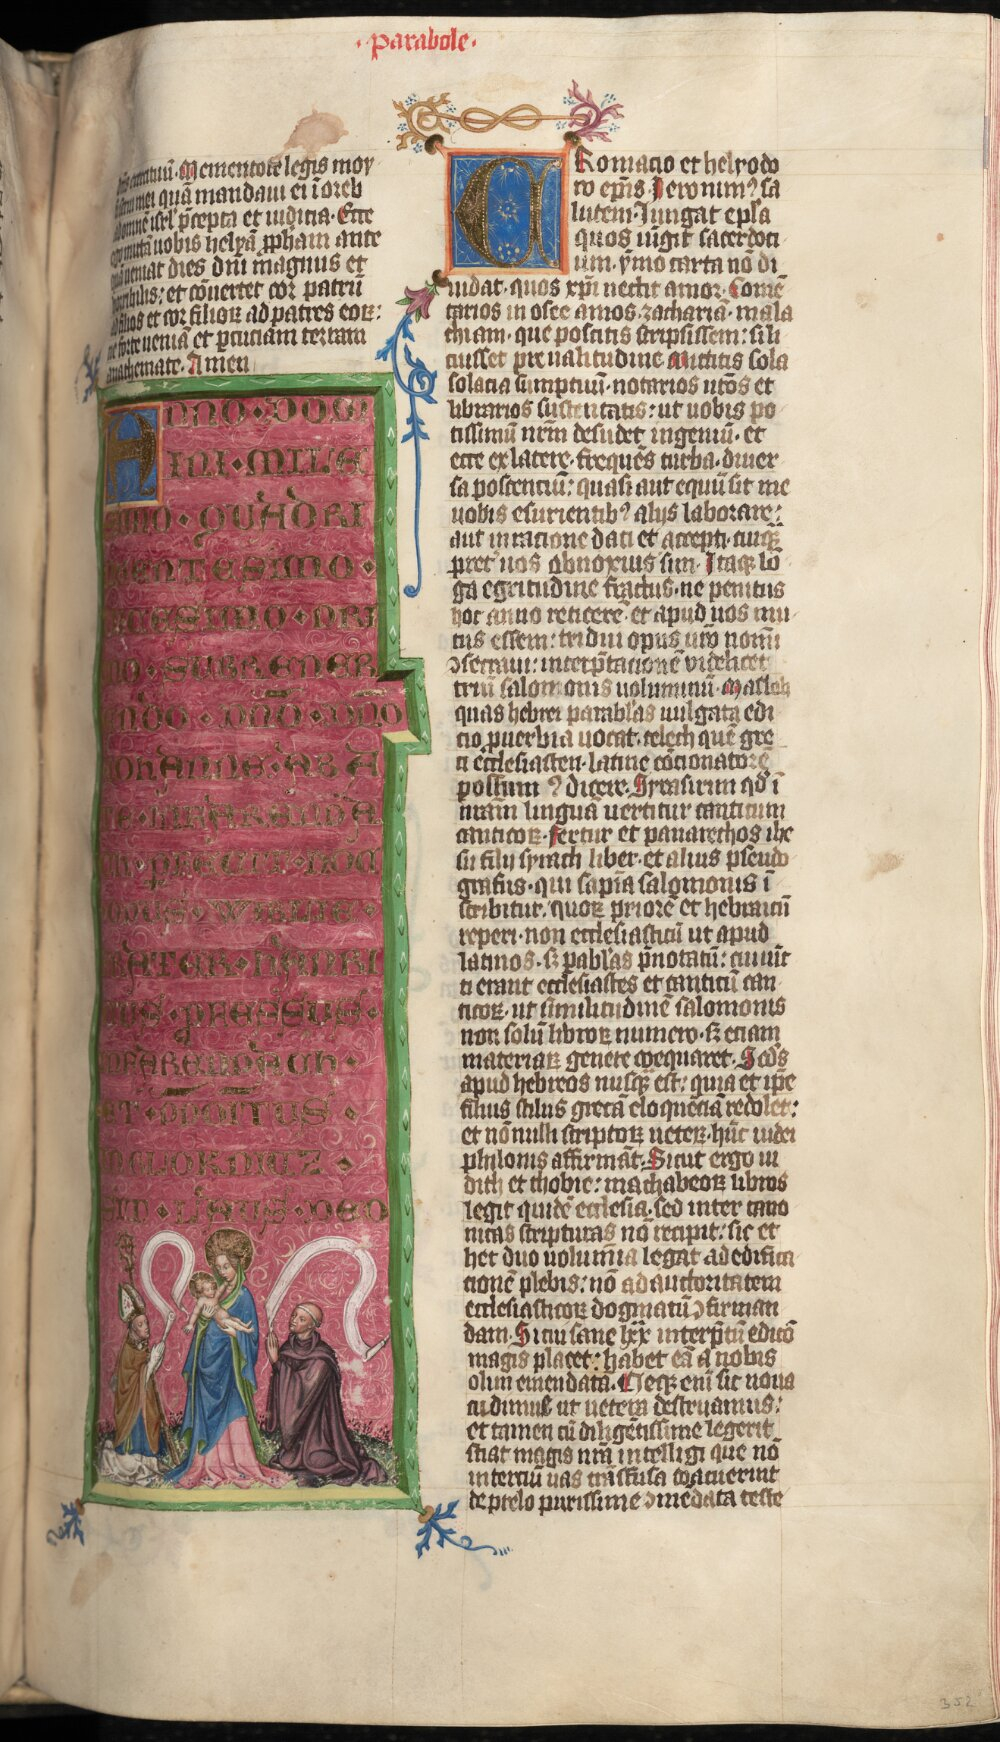 ·parabole·
Mementote legis moy
mei quā mandaui ei ī oreb
omnē isrl' p̄cepta et iudicia· Ecce
uobis helyā ꝓpham ante
ueniat dies dn̄i magnus et
horribilis: et cōuertet cor patrū
ad filios et cor filioꝝ ad patres eoꝝ:
ne forte ueniā et ꝑcuciam terram
anathemate· Amen
ANNO·DOM
INI·MILE
SIMO·QUADRI
GENTESIMO·
TRICESIMO·PRI
MO·SUBREUER
ENDO·DN̄O·DN̄O
IOHANNE·ABBA
TE
FECIT·HOC
OPUS·WIBLIE·
FRATER·HANRI
CUS·
ET·PP̄OSITUS·
SIT·LAUS·DEO
CRomacio et helyodo
ro ep̄is Jeronimꝰ sa
lutem· Jungat ep̄la
quos iūgit sacerdoci
um· ymo carta nō di
uidat· quos xp̄i nectit amor· Comē
tarios in osee amos· zachariā· mala
chiam· que poscitis scripsissem: si li
cuisset pre ualitudine Mittitis sola
solacia sumptuū· notarios nr̄os et
librarios sustentatis: ut uobis po
tissimū nrm̄ desudet ingeniū· et
ecce ex latere· frequēs turba· diuer
sa poscenciū: quasi aut equū sit me
uobis esurientibꝰ alijs laborare:
aut in racione dati et accepti· cuiqȝ
pret' uos obnoxius sum· Itaqȝ lō
ga egritudine fractus· ne penitus
hoc anno reticerē· et apud uos mu
tus essem: tridui opus nr̄o nomī
ↄsecraui: interp̄tacionē videlicet
triū salomonis uoluminū· Masloth
quas hebrei parabl'as uulgata edi
cio ꝓuerbia uocat· celeth quē gre
ci ecclesiasten· latine cōcionatorē
possum ꝰ dicere· Syrasirim qd' ī
nrām lingua vertitur canticum
canticoꝝ· fertur et panarethos ihe
su filij syrach liber· et alius pseudo
grafus· qui sapiā salomonis ī
scribitur· quoꝝ priorē et hebraicū
reperi· non ecclesiasticū ut apud
latinos· sȝ pabl'as p̄notatū: cui iūc
ti erant ecclesiastes et canticū can
ticoꝝ· ut similitudinē salomonis
non solū libroꝝ numero· sȝ etiam
materiaꝝ genere coequaret· Scd's
apud hebreos nusqȝ est: quia et ip̄e
stilus grecā eloquenciā redolet:
et nōnulli scriptoꝝ ueteꝝ· hūc iudei
philonis affirmāt· Sicut ergo iu
dith et thobie: machabeoꝝ libros
legit quidē ecclesia· sed inter cano
nicas scripturas nō recipit: sic et
hec duo uolumīa legat ad edifica
cionē plebis: nō ad auctoritatem
ecclesiasticoꝝ dogmatū ↄfirman
dam· Si cui sane lxx interp̄tū edico
magis placet: habet eā a nobis
olim emendatā· Neqȝ enī sic noua
cudimus ut uetera destruamus:
et tamen cū diligētissime legerit
sciat magis nrā intelligi que nō
in terciū uas trāsfusa coacuerint
se p̄relo purissime ↄmēdata teste
352